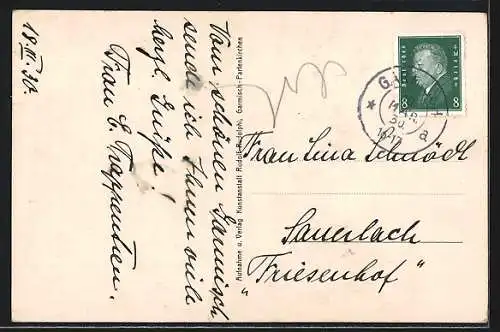 13.III.30.
Vom schönen Garmisch
sende ich Ihnen viele
herzl. Grüße!
Frau E. Trappentreu.
Aufnahme u. Verlag Kunstanstalt Rudolf Rudolphi, Garmisch-Partenkirchen
Deutsches Reich
8 8
Frau Lina Schmödt
Sauerlach
"Friesenhof"